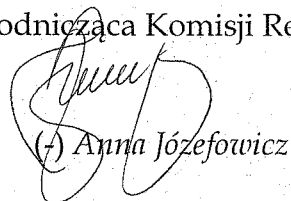 odnicząca Komisji Re
(-) Anna Józefowicz